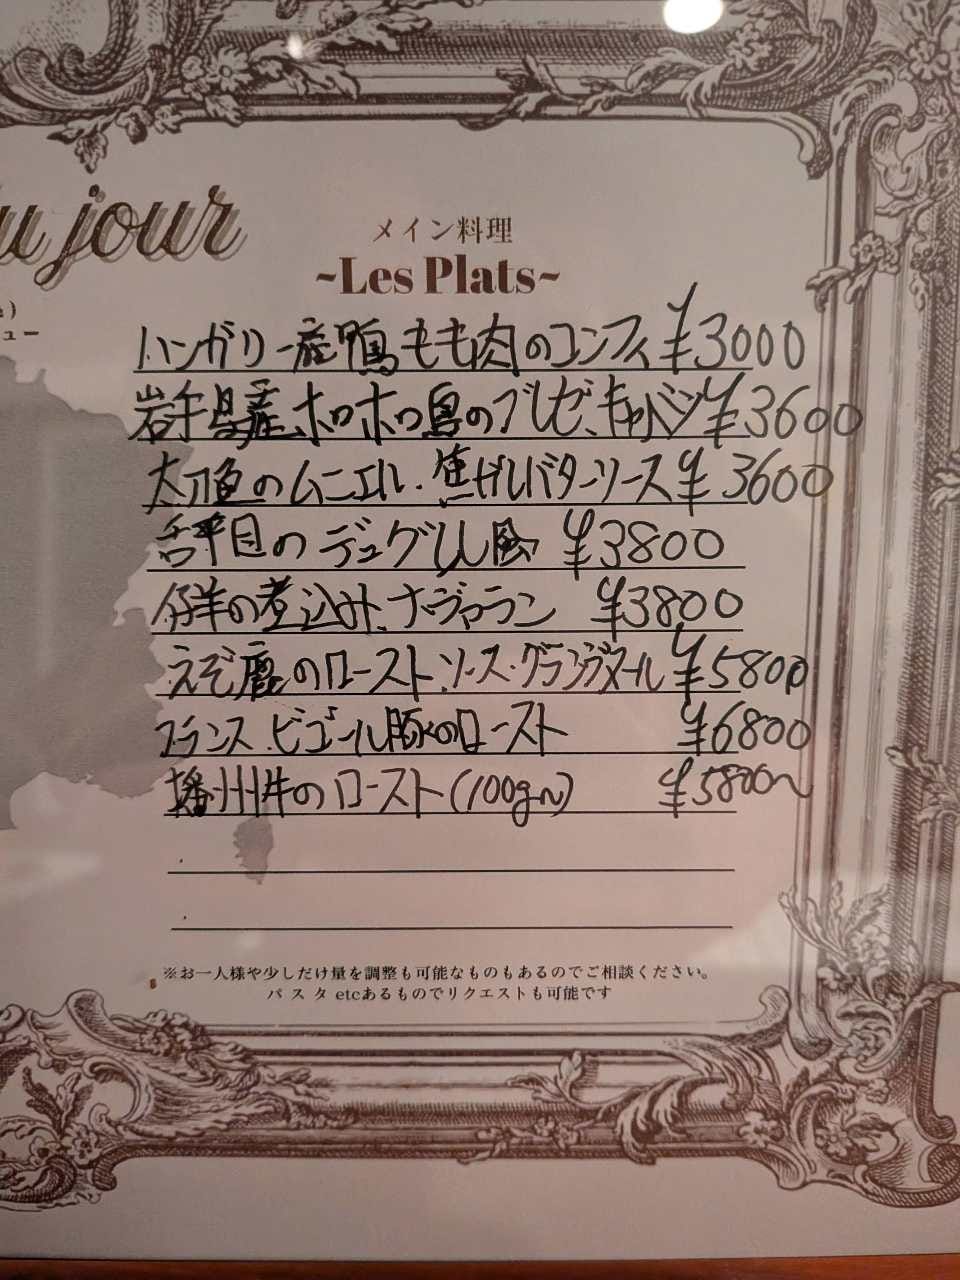 u jour
メイン料理
~Les Plats~
)
ュー
ハンガリー産鴨もも肉のコンフィ ¥3000
岩手県産、ホロホロ鳥のブレゼ、キャベツ ¥3600
太刀魚のムニエル、焦がしバターソース ¥3600
舌平目のデュグレレ風 ¥3800
仔羊の煮込み、ナヴァラン ¥3800
えぞ鹿のロースト、ソース・グランヴヌール ¥5800
フランス、ビゴール豚のロースト ¥6800
播州牛のロースト(100g~) ¥5800~
※お一人様や少しだけ量を調整も可能なものもあるのでご相談ください。
パスタ etcあるものでリクエストも可能です